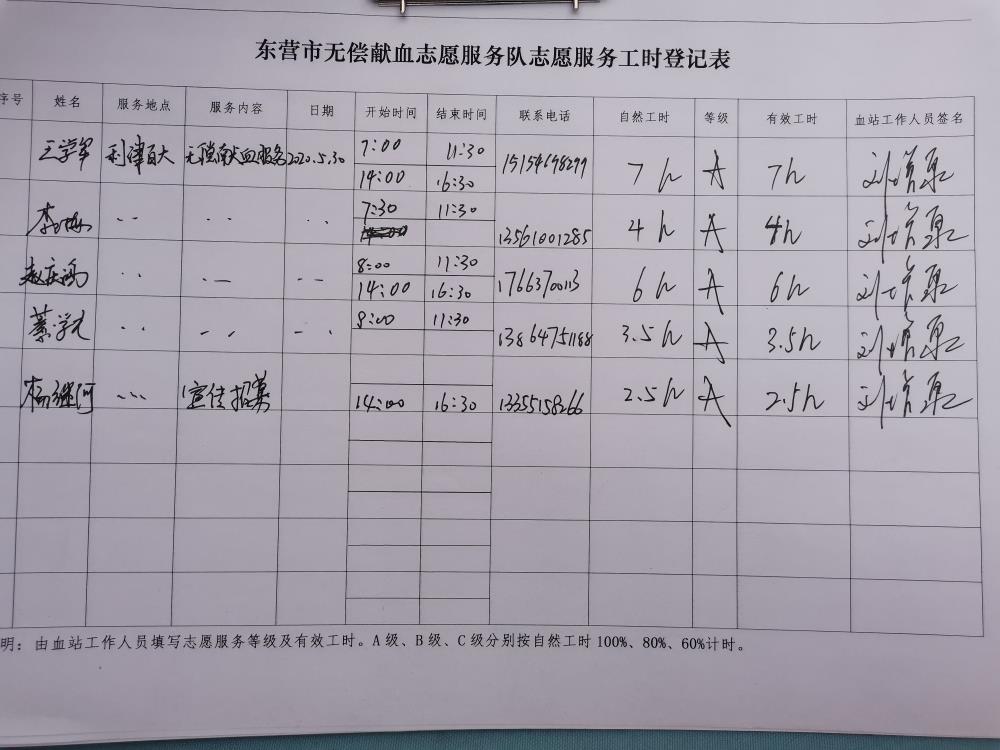 东营市无偿献血志愿服务队志愿服务工时登记表
序号 姓名 服务地点 服务内容 日期 开始时间 结束时间 联系电话 自然工时 等级 有效工时 血站工作人员签名
王学军 利津百大 无偿献血服务 2020.5.30 7:00 11:30 15154698299 7h A 7h
14:00 16:30
7:30 11:30 13561001285 4h A 4h
8:00 11:30 17663700113 6h A 6h
14:00 16:30
9:00 11:30 13864751188 3.5h A 3.5h
杨继河 宣传招募 14:00 16:30 13355158266 2.5h A 2.5h
明：由血站工作人员填写志愿服务等级及有效工时。A级、B级、C级分别按自然工时100%、80%、60%计时。